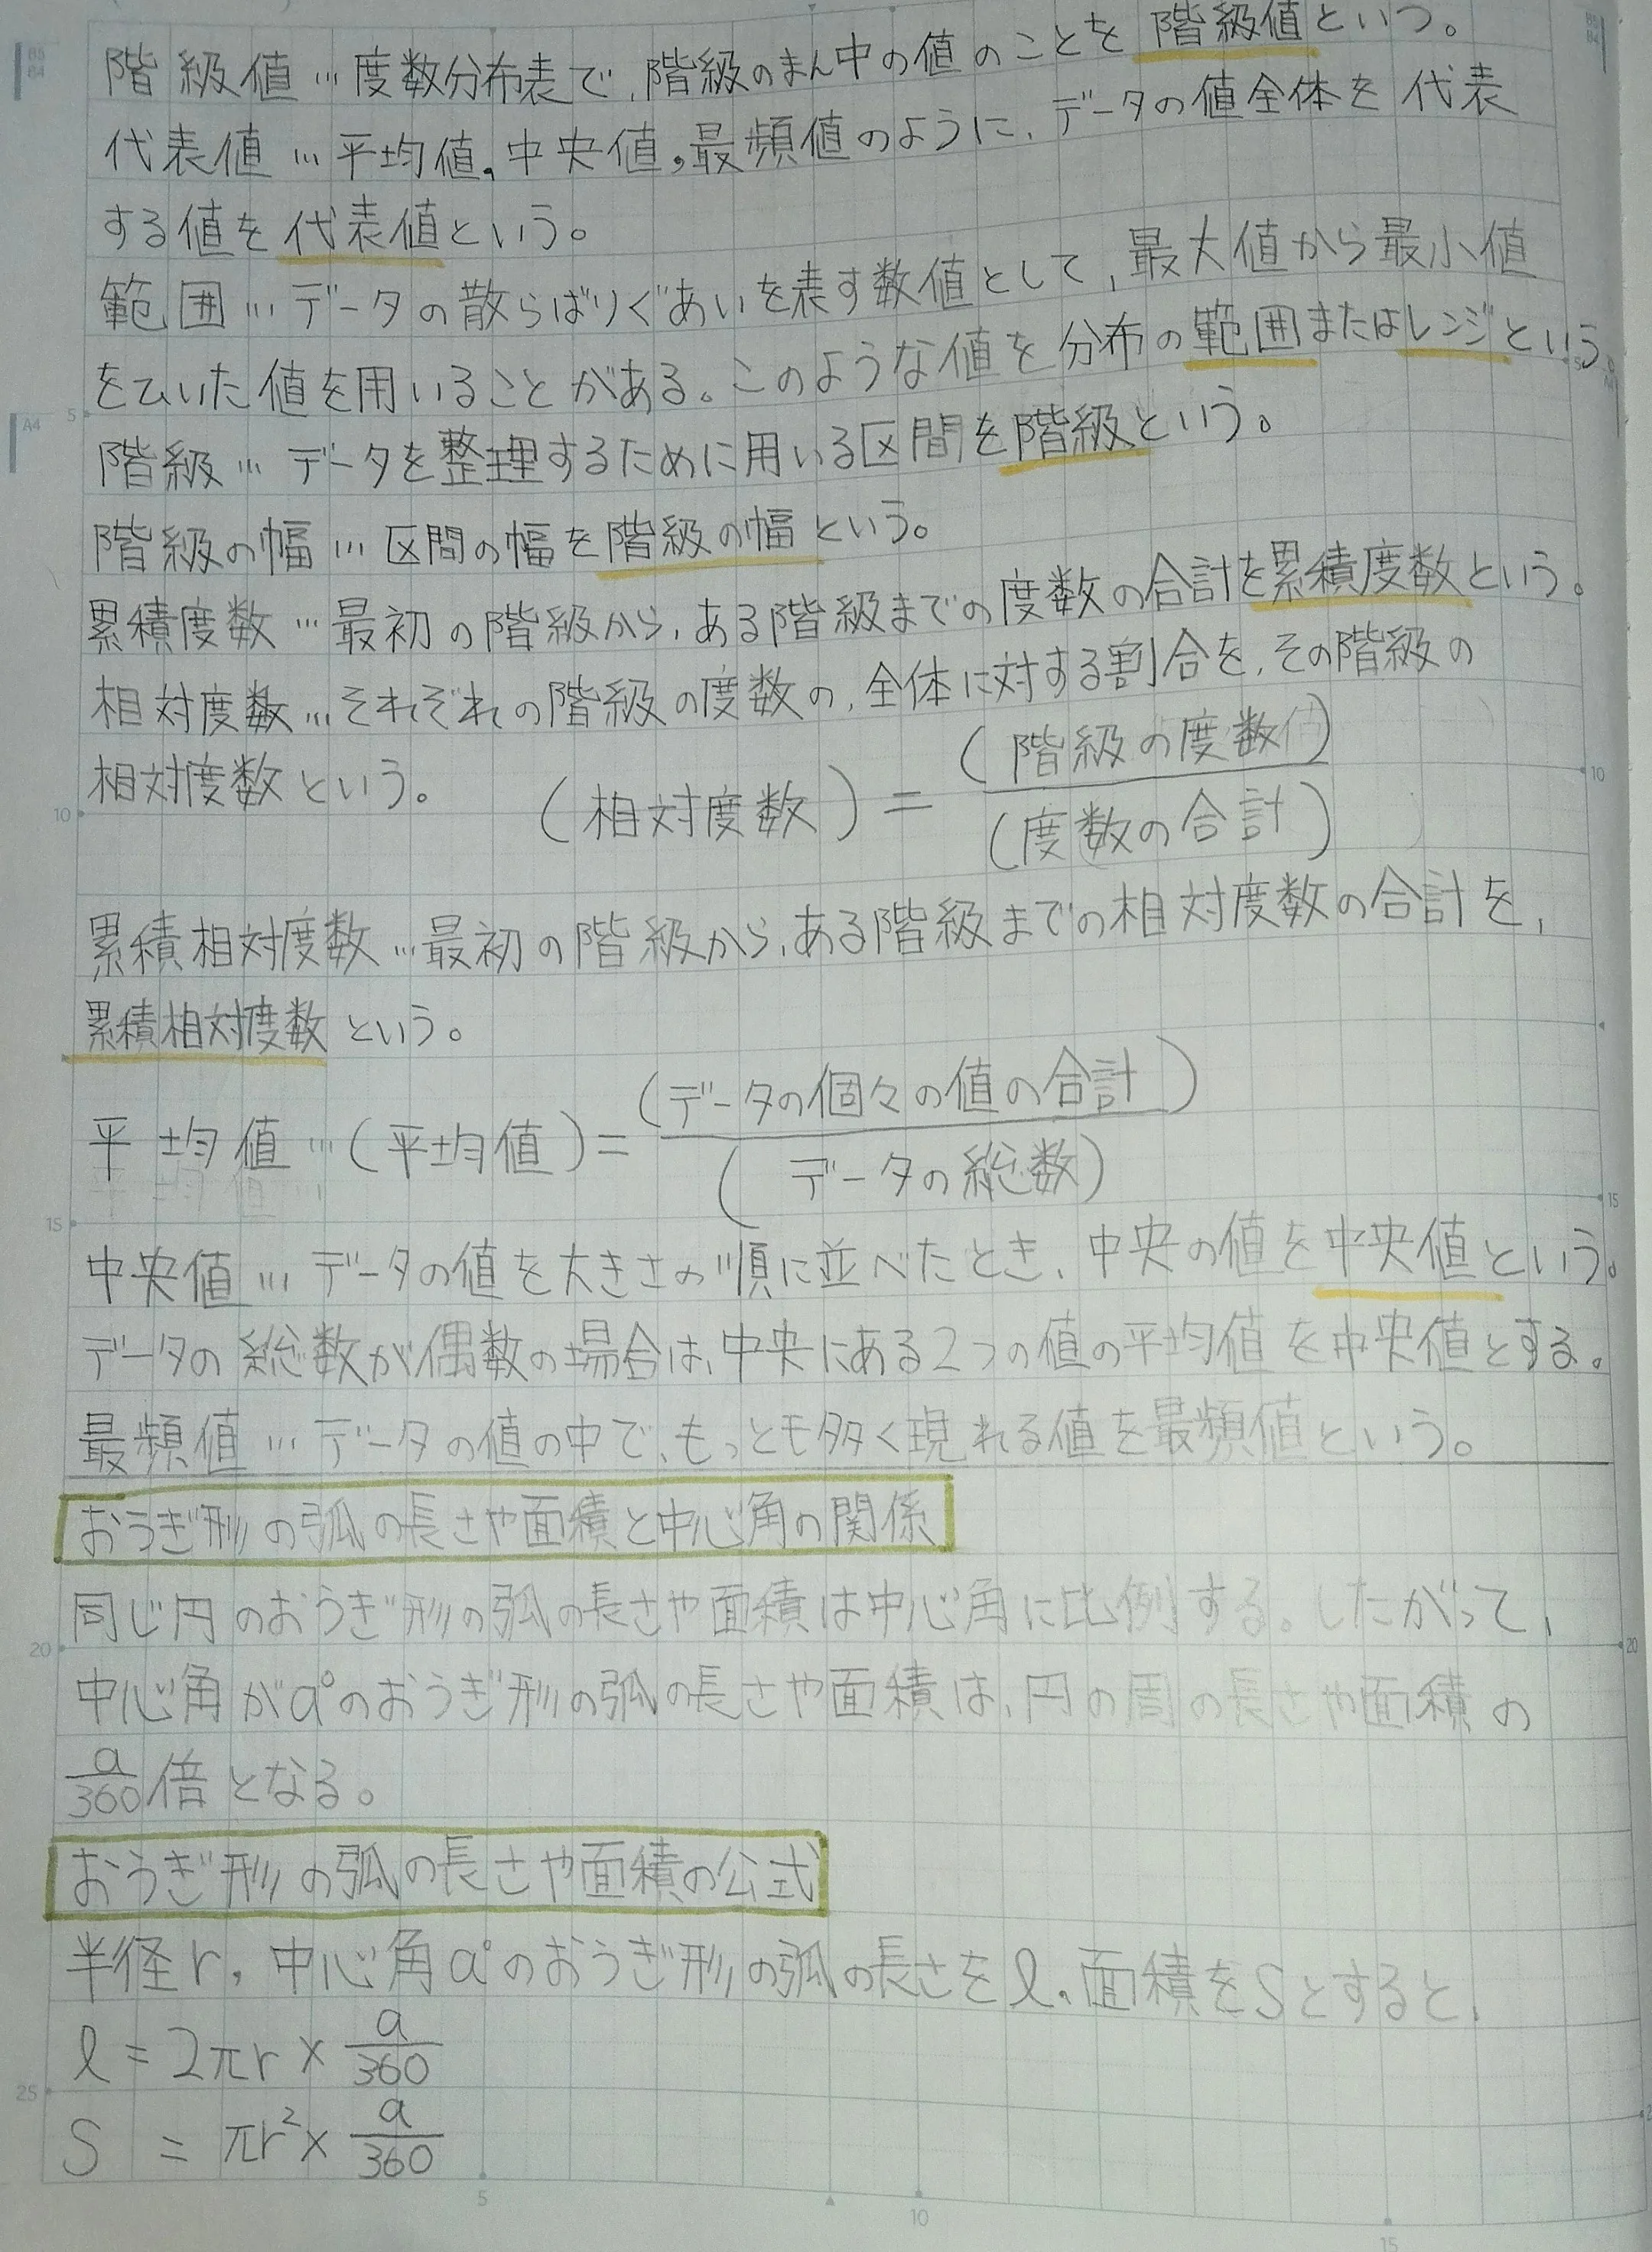 階級値…度数分布表で、階級のまん中の値のことを階級値という。
代表値…平均値,中央値,最頻値のように、データの値全体を代表
する値を代表値という。
範囲…データの散らばりぐあいを表す数値として、最大値から最小値
をひいた値を用いることがある。このような値を分布の範囲またはレンジという。
階級…データを整理するために用いる区間を階級という。
階級の幅…区間の幅を階級の幅という。
累積度数…最初の階級から、ある階級までの度数の合計を累積度数という。
相対度数…それぞれの階級の度数の、全体に対する割合を、その階級の
相対度数という。 (相対度数) = (階級の度数) / (度数の合計)
累積相対度数…最初の階級から、ある階級までの相対度数の合計を、
累積相対度数という。
平均値…(平均値) = (データの個々の値の合計) / (データの総数)
中央値…データの値を大きさの順に並べたとき、中央の値を中央値という。
データの総数が偶数の場合は、中央にある2つの値の平均値を中央値とする。
最頻値…データの値の中で、もっとも多く現れる値を最頻値という。
おうぎ形の弧の長さや面積と中心角の関係
同じ円のおうぎ形の弧の長さや面積は中心角に比例する。したがって、
中心角がa°のおうぎ形の弧の長さや面積は、円の周の長さや面積の
a/360倍となる。
おうぎ形の弧の長さや面積の公式
半径r,中心角a°のおうぎ形の弧の長さをℓ,面積をSとすると、
ℓ = 2πr × a/360
S = πr² × a/360